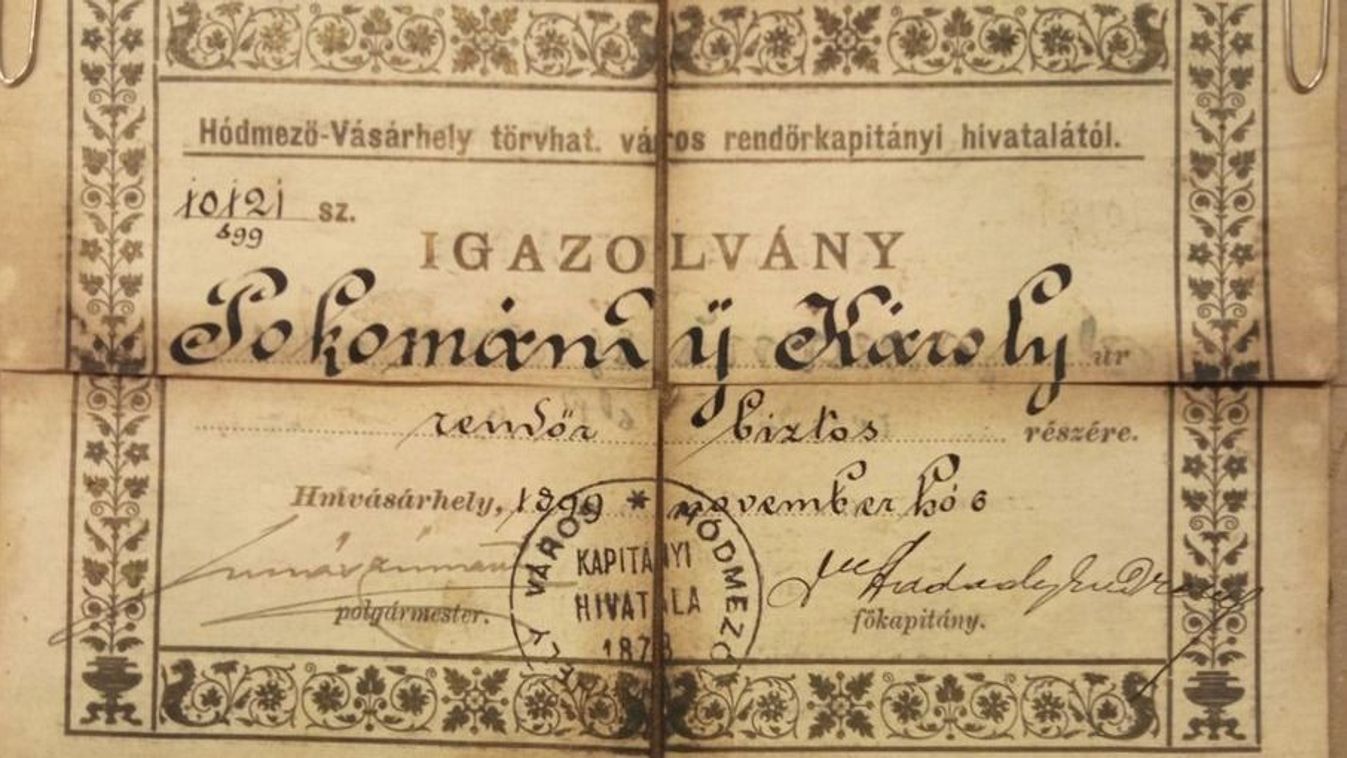 Hódmező-Vásárhely törvhat. város rendőrkapitányi hivatalától.
10121 sz.
899
IGAZOLVÁNY
Pokomándy Károly úr
rendőr biztos részére.
Hmvásárhely, 1899 november hó 6
polgármester.
főkapitány.
VÁROS * HÓDMEZŐ
KAPITÁNYI
HIVATALA
1873